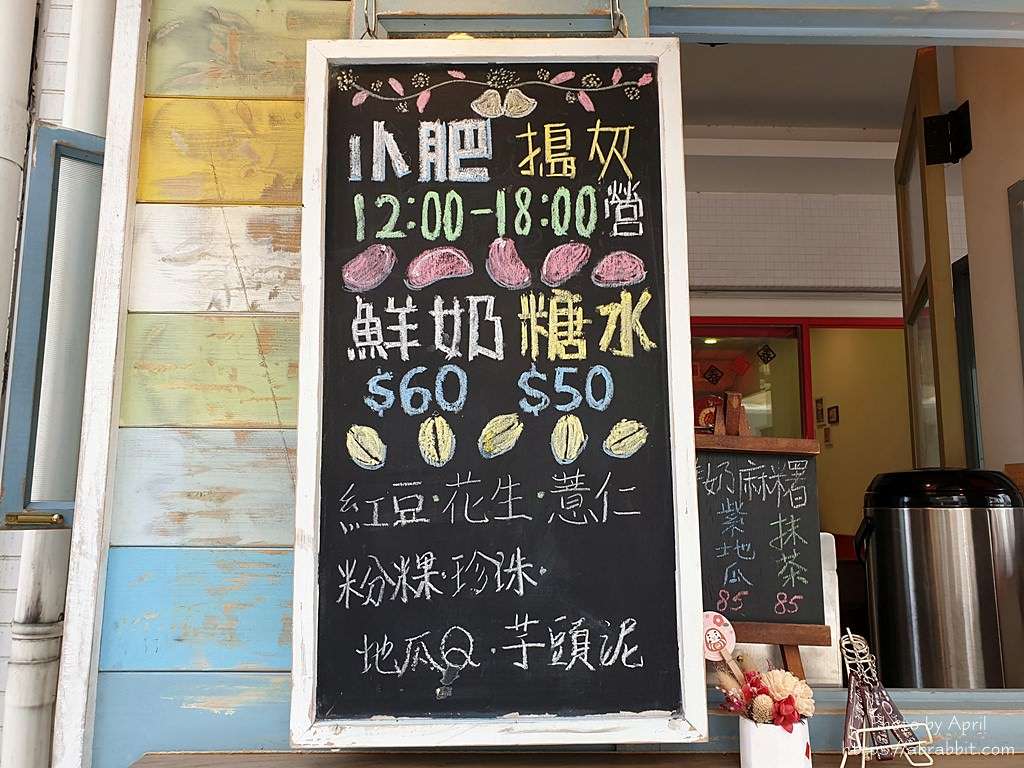 小肥 搗灰
12:00-18:00 營
鮮奶 糖水
$60 $50
紅豆·花生·薏仁
粉粿·珍珠·
地瓜Q·芋頭泥
奶麻糬
紫地瓜 抹茶
85 85
Photo by April
https://abrabbit.com